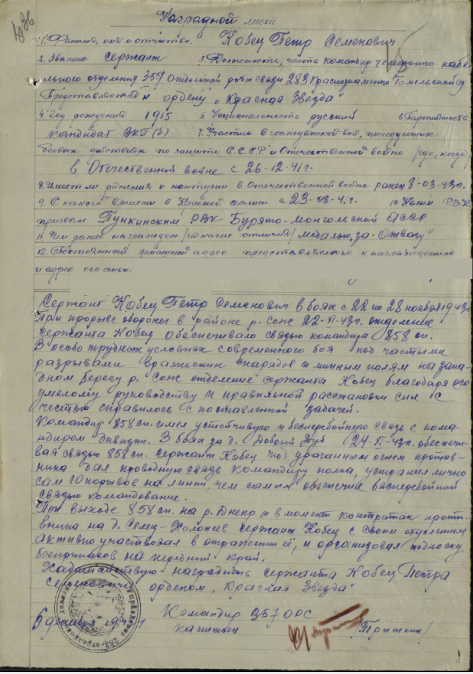 Наградной лист
1. Фамилия, имя и отчество. Кобец Петр Семенович
2. Звание Сержант 3. Должность, часть командир
отделения 367 Отдельной роты связи 283 Краснознаменно Гомельской СД
Представляется к ордену „Красная Звезда"
4. Год рождения 1915 5. Национальность русский 6. Партийность
кандидат ВКП(б) 7. Участие в гражданской войне, последующих
боевых действиях по защите С.С.С.Р. и Отечественной войне (где, когда)
в Отечественной войне с 26-12-41г.
8. Имеет ли ранения и контузии в Отечественной войне ранен 8-03-43г.
9. С какого времени в Красной армии с 23-08-41г. 10. Каким Р.В.К
призван РВК Бурято-Монгольской АССР
11. Чем ранее награжден (за какие отличия) медалью „за Отвагу"
12. Постоянный домашний адрес представляемого к награждению
и адрес его семьи.
Сержант Кобец Петр Семенович в боях с 22 по 28 ноября 1943г.
При прорыве обороны в районе р. Сож 22-XI-43г. отделение
сержанта Кобец обеспечивало связью командира 858 сп.
В особо трудных условиях современного боя под частыми
разрывами вражеских снарядов и минным полям на запа-
дном берегу р. Сож отделение сержанта Кобец благодаря его
умелому руководству и правильной расстановки сил с
честью справилось с поставленной задачей.
Командир 858 сп. имел устойчивую и бесперебойную связь с кома-
ндиром дивизии. В боях за д. Добрый Дуб (24-XI-43г. обеспечи-
вая связью 858 сп. сержант Кобец под ураганным огнем против-
ника дал проводную связь командиру полка, устранял лично
сам 10 порывов на линии чем самим обеспечив бесперебойной
связью командование.
При выходе 858 сп. на р. Днепр и в момент контратак проти-
вника на д. Селец-Холопеев сержант Кобец с своим отделением
активно участвовал в отражении её, и организовал подноску
боеприпасов на передний край.
Ходатайствую наградить сержанта Кобец Петра
Семеновича орденом „Красная Звезда"
Командир 367 ОРС
капитан
6 декабря 1943г.